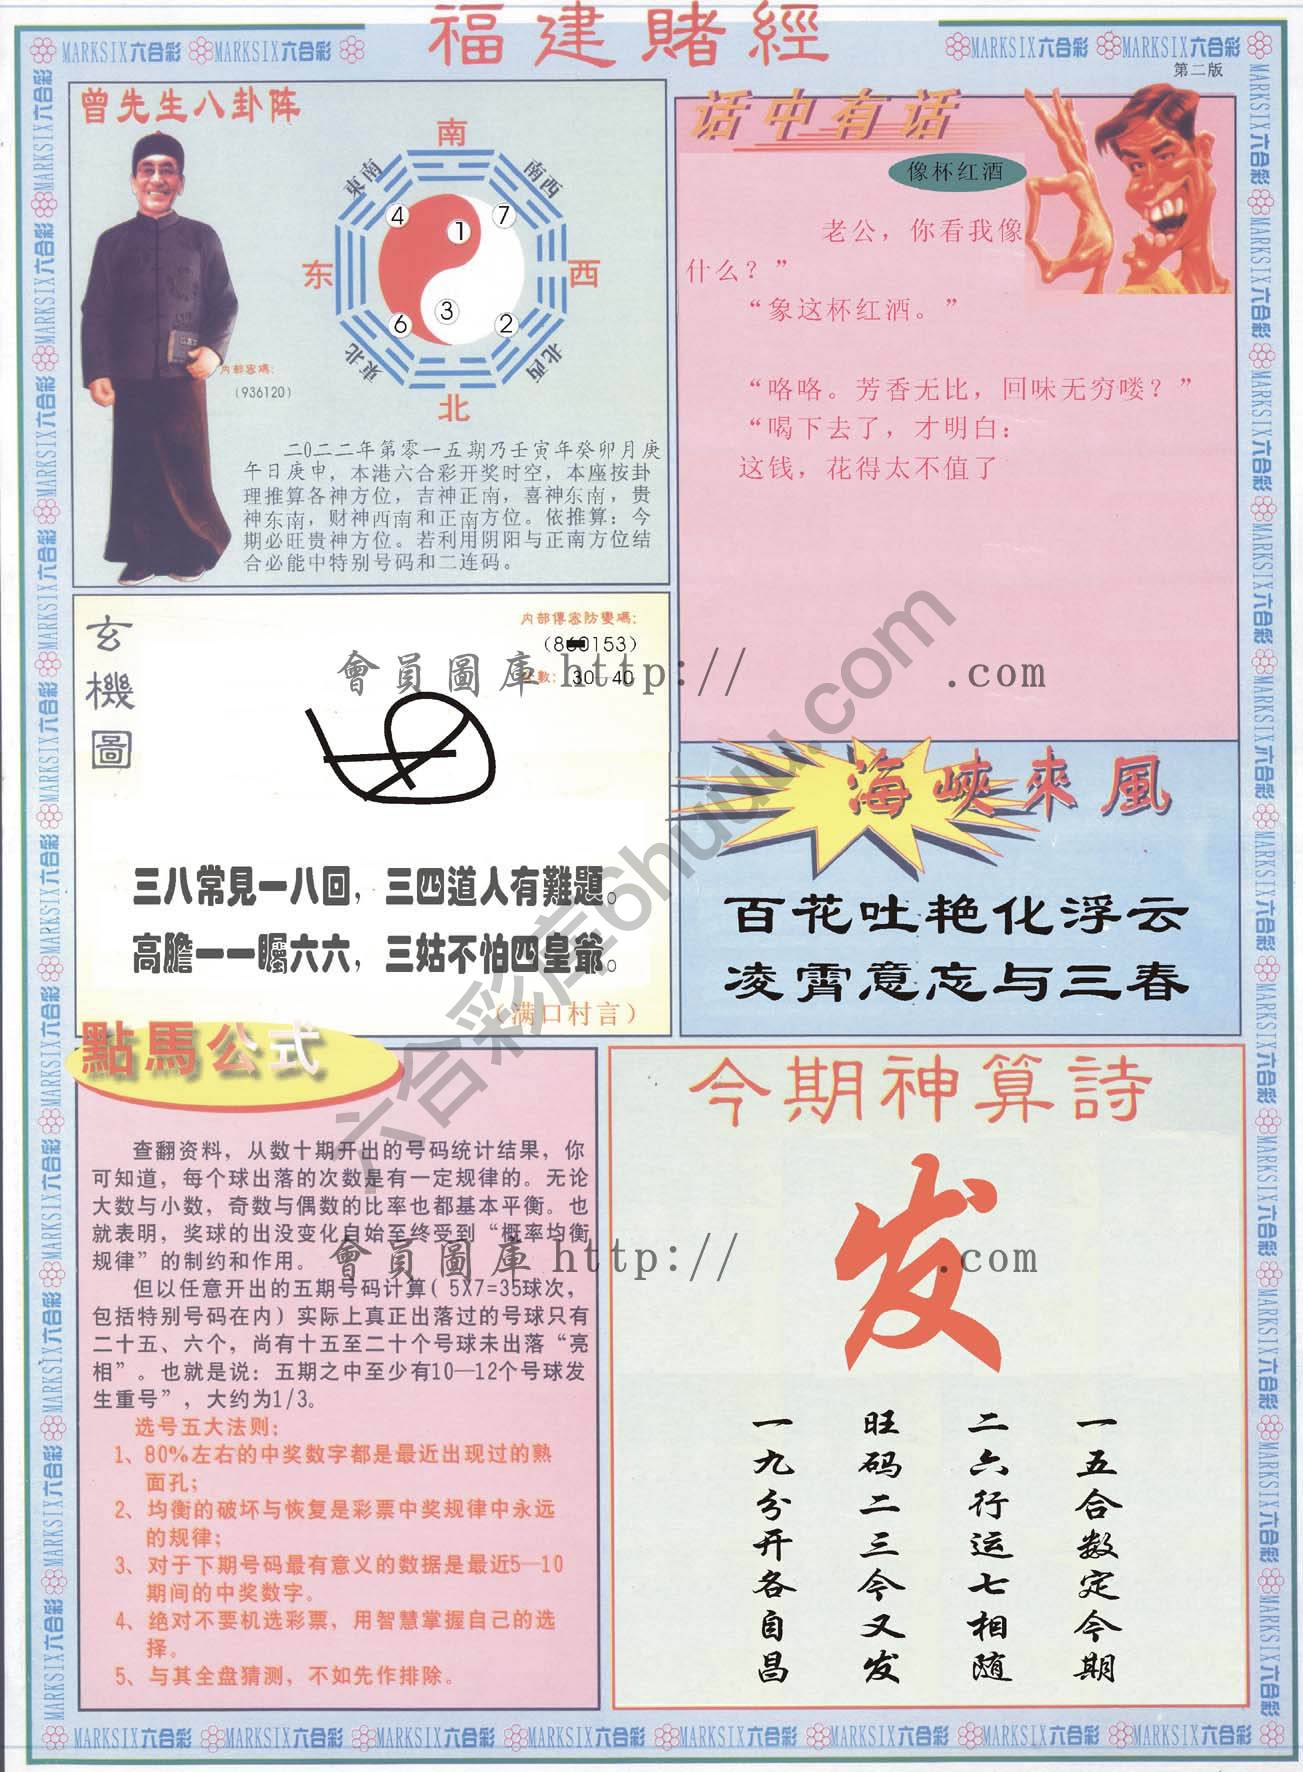 福建賭經
MARKSIX六合彩 MARKSIX六合彩
MARKSIX六合彩 MARKSIX六合彩
第二版
曾先生八卦阵
南
東南
南西
4
7
1
东
西
3
6
2
東北
北西
北
内部密碼：
（936120）
二0二二年第零一五期乃壬寅年癸卯月庚
午日庚申，本港六合彩开奖时空，本座按卦
理推算各神方位，吉神正南，喜神东南，贵
神东南，财神西南和正南方位。依推算：今
期必旺贵神方位。若利用阴阳与正南方位结
合必能中特别号码和二连码。
话中有话
像杯红酒
老公，你看我像
什么？”
“象这杯红酒。”
“咯咯。芳香无比，回味无穷喽？”
“喝下去了，才明白：
这钱，花得太不值了
玄機圖
内部傳密防變碼：
（860153）
數：30-40
會員圖庫 http:// .com
三八常見一八回，三四道人有難題。
高膽一一矚六六，三姑不怕四皇爺。
（满口村言）
海峽來風
百花吐艳化浮云
凌霄意忘与三春
六合彩库6huuu.com
點馬公式
查翻资料，从数十期开出的号码统计结果，你
可知道，每个球出落的次数是有一定规律的。无论
大数与小数，奇数与偶数的比率也都基本平衡。也
就表明，奖球的出没变化自始至终受到“概率均衡
规律”的制约和作用。
但以任意开出的五期号码计算( 5X7=35球次，
包括特别号码在内）实际上真正出落过的号球只有
二十五、六个，尚有十五至二十个号球未出落“亮
相”。也就是说：五期之中至少有10—12个号球发
生重号”，大约为1/3。
选号五大法则：
1、80%左右的中奖数字都是最近出现过的熟
面孔；
2、均衡的破坏与恢复是彩票中奖规律中永远
的规律；
3、对于下期号码最有意义的数据是最近5—10
期间的中奖数字。
4、绝对不要机选彩票，用智慧掌握自己的选
择。
5、与其全盘猜测，不如先作排除。
今期神算詩
發員圖庫 http:// .com
发
一五合数定今期
二六行运七相随
旺码二三今又发
一九分开各自昌
MARKSIX六合彩 MARKSIX六合彩 MARKSIX六合彩 MARKSIX六合彩 MARKSIX六合彩 MARKSIX六合彩 MARKSIX六合彩 MARKSIX六合彩